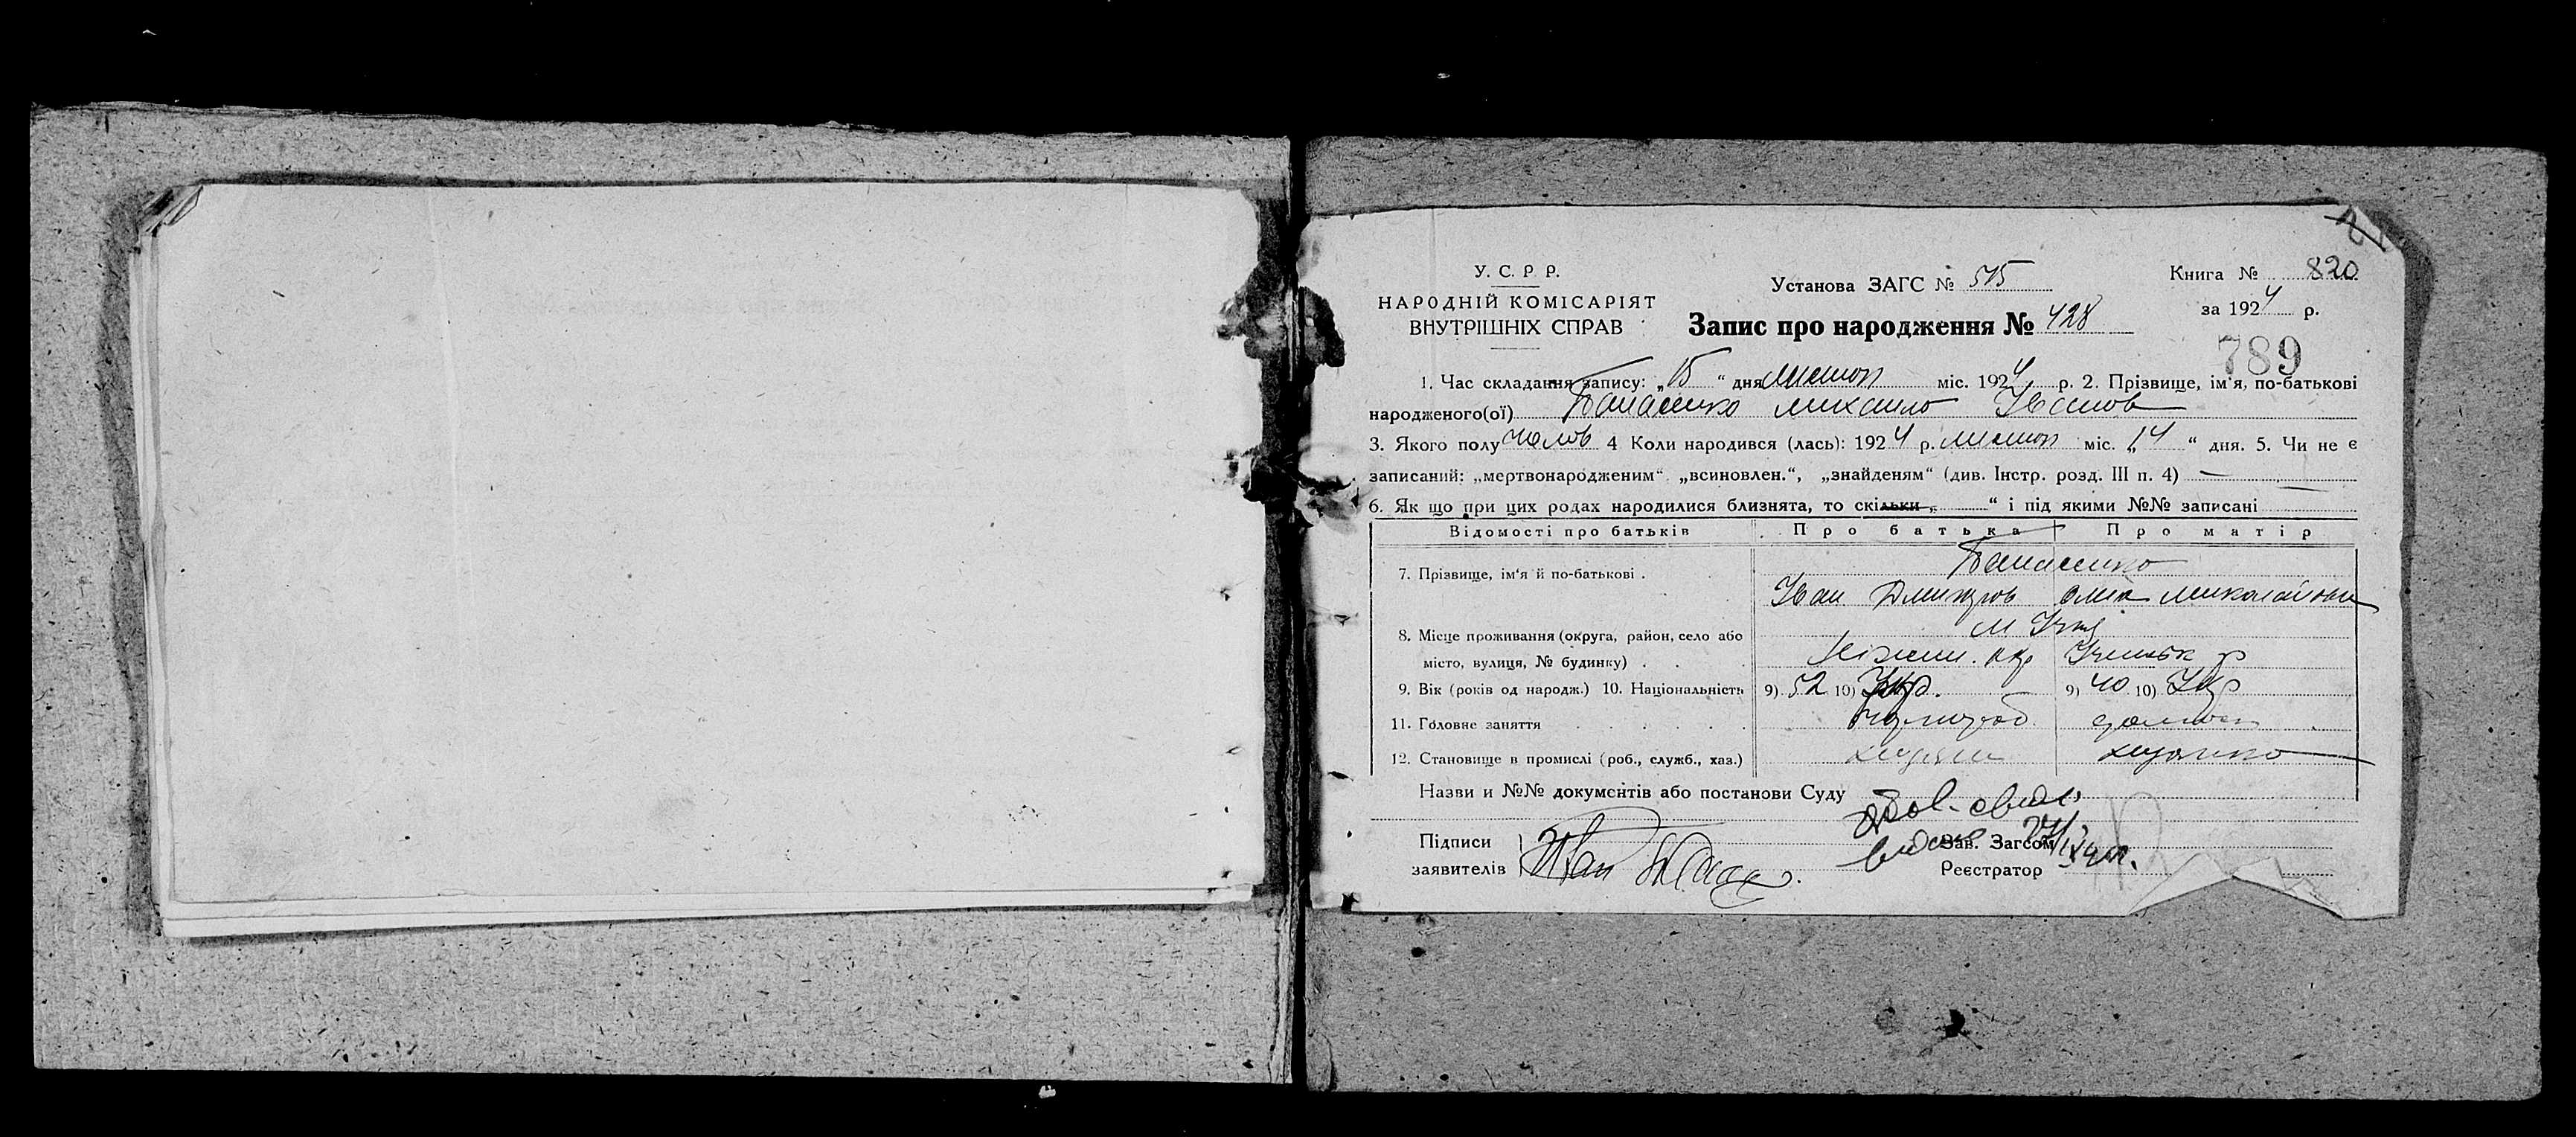 У. С. Р. Р.
НАРОДНІЙ КОМІСАРІЯТ
ВНУТРІШНІХ СПРАВ
Установа ЗАГС № 515
Запис про народження № 428
Книга № 820
за 1924 р.
789
1. Час складання запису: „15“ дня листоп міс. 1924 р. 2. Прізвище, ім‘я, по-батькові
народженого(ої) Панасенко Михаило Іванов
3. Якого полу чолов 4 Коли народився (лась): 1924 р. листоп міс. „14“ дня. 5. Чи не є
записаний: „мертвонародженим“ „всиновлен.“, „знайденям“ (див. Інстр. розд. III п. 4) —
6. Як що при цих родах народилися близнята, то скільки „ “ і під якими №№ записані
Відомості про батьків Про батька Про матір
7. Прізвище, ім‘я й по-батькові . Панасенко
Іван Дмитров Миколаївна
8. Місце проживання (округа, район, село або м Ічня
місто, вулиця, № будинку) . . . Ніжин. окр Іченськ р
9. Вік (років од народж.) 10. Національність 9) 52 10) Укр. 9) 40 10) Укр
11. Головне заняття
12. Становище в промислі (роб., служб., хаз.)
Назви и №№ документів або постанови Суду
Підписи
заявителів Иван
Зав. Загсом
Реєстратор